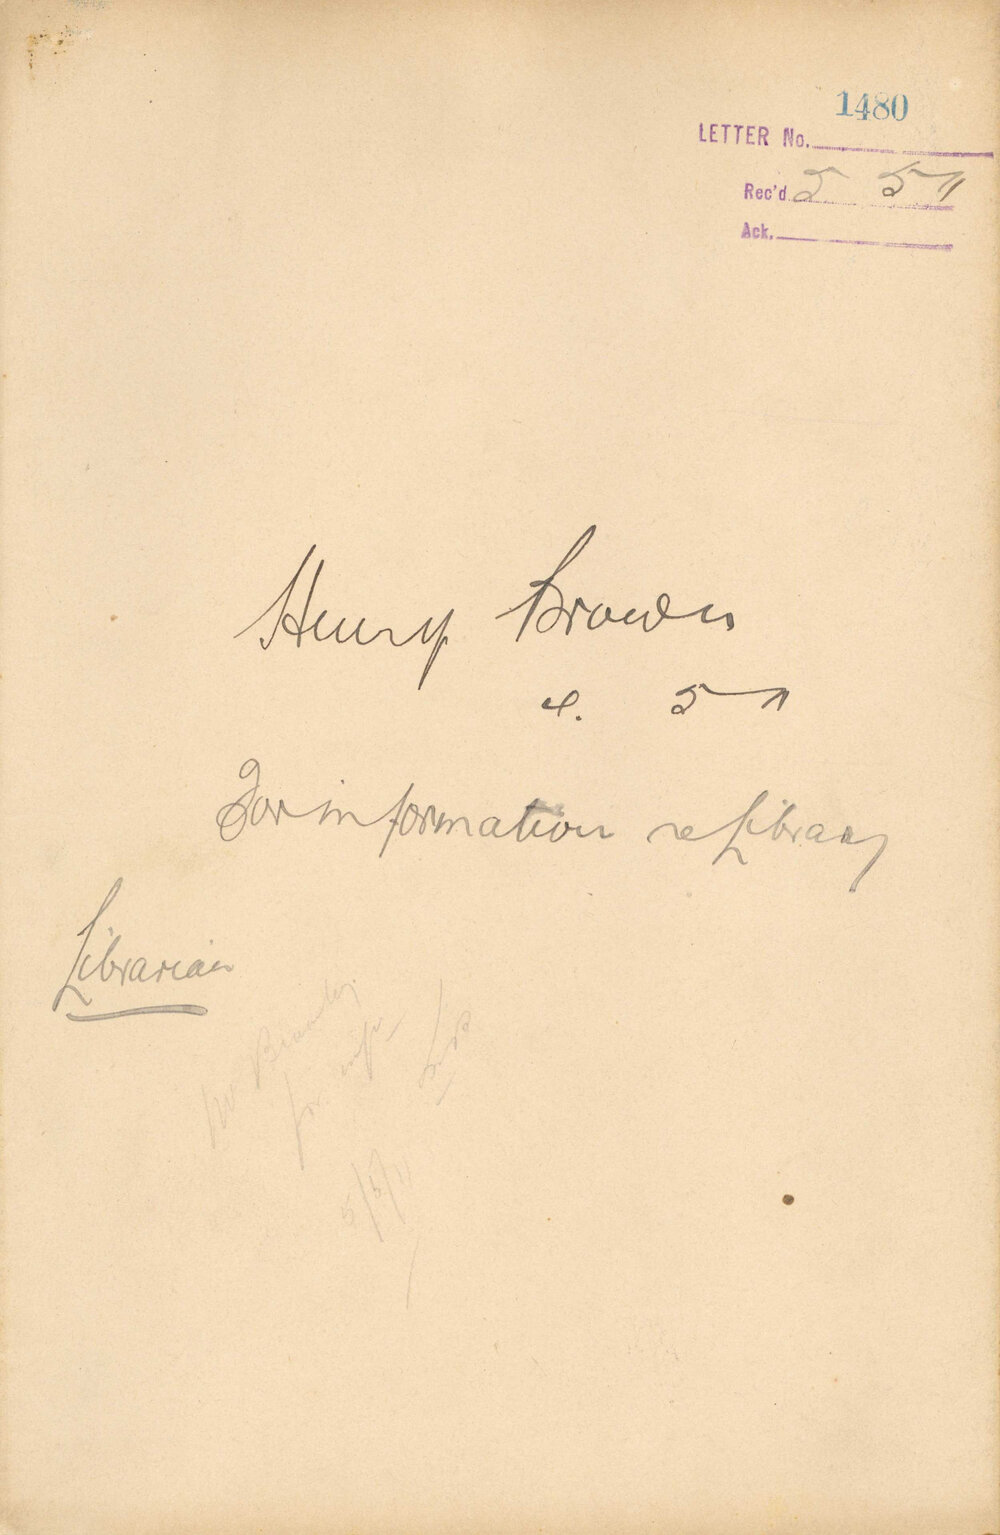 1480
LETTER No.
Rec'd 5 5 11
Ack.
Henry Brown
4. 5 11
For information re Library
Librarian
Mr
for info
5/5/11